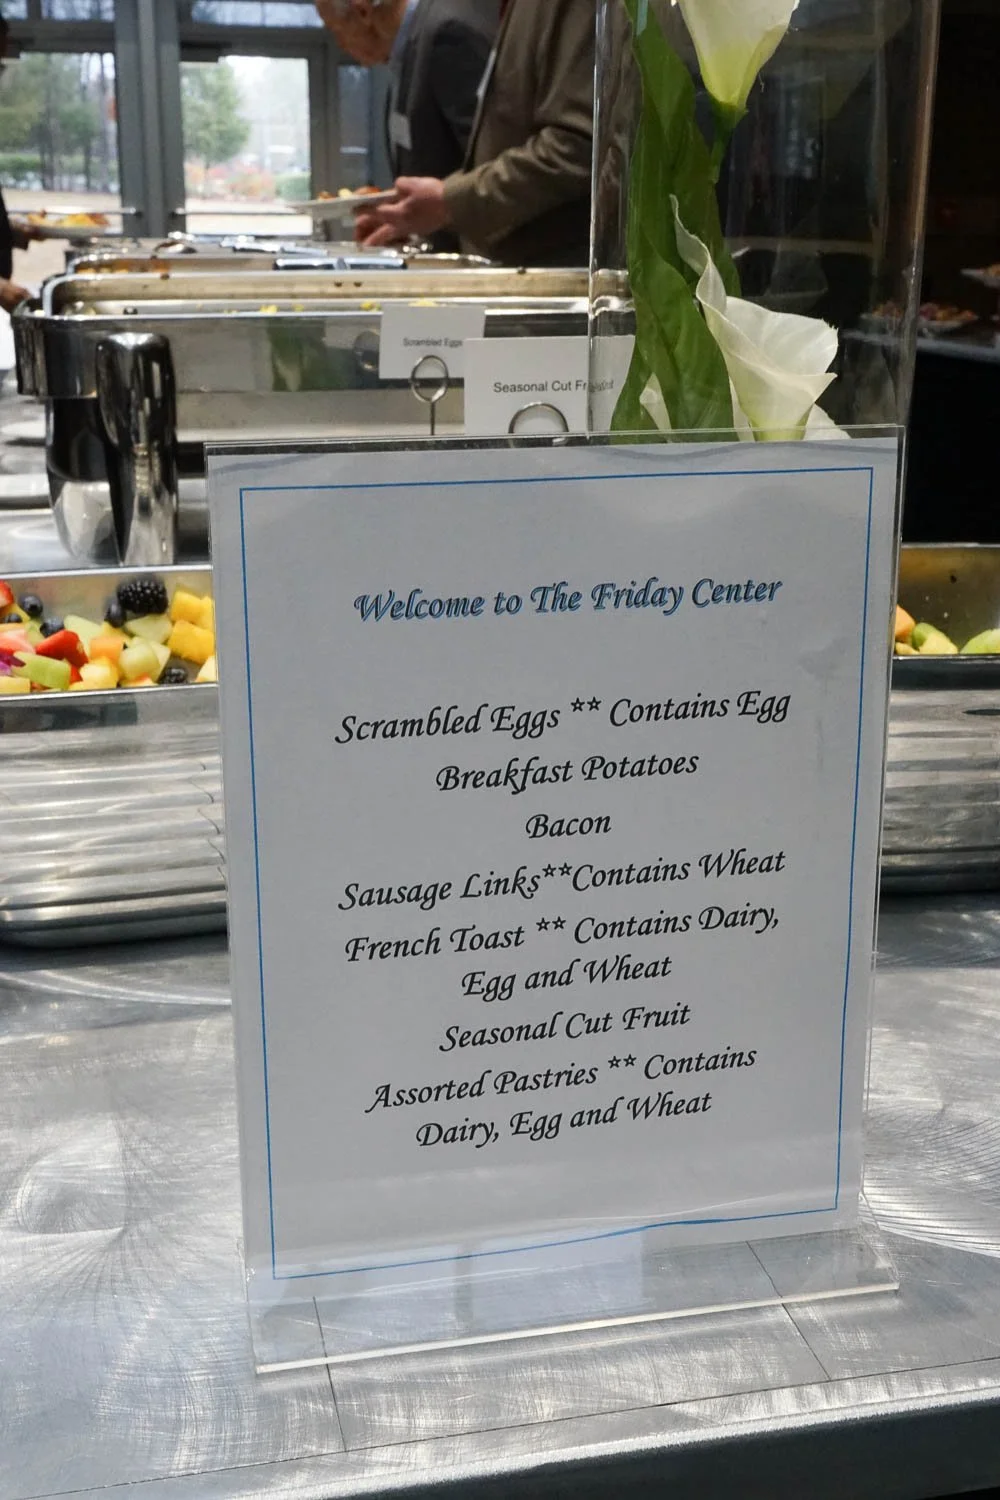 Scrambled Eggs
Seasonal Cut Fr
Welcome to The Friday Center
Scrambled Eggs ** Contains Egg
Breakfast Potatoes
Bacon
Sausage Links**Contains Wheat
French Toast ** Contains Dairy,
Egg and Wheat
Seasonal Cut Fruit
Assorted Pastries ** Contains
Dairy, Egg and Wheat